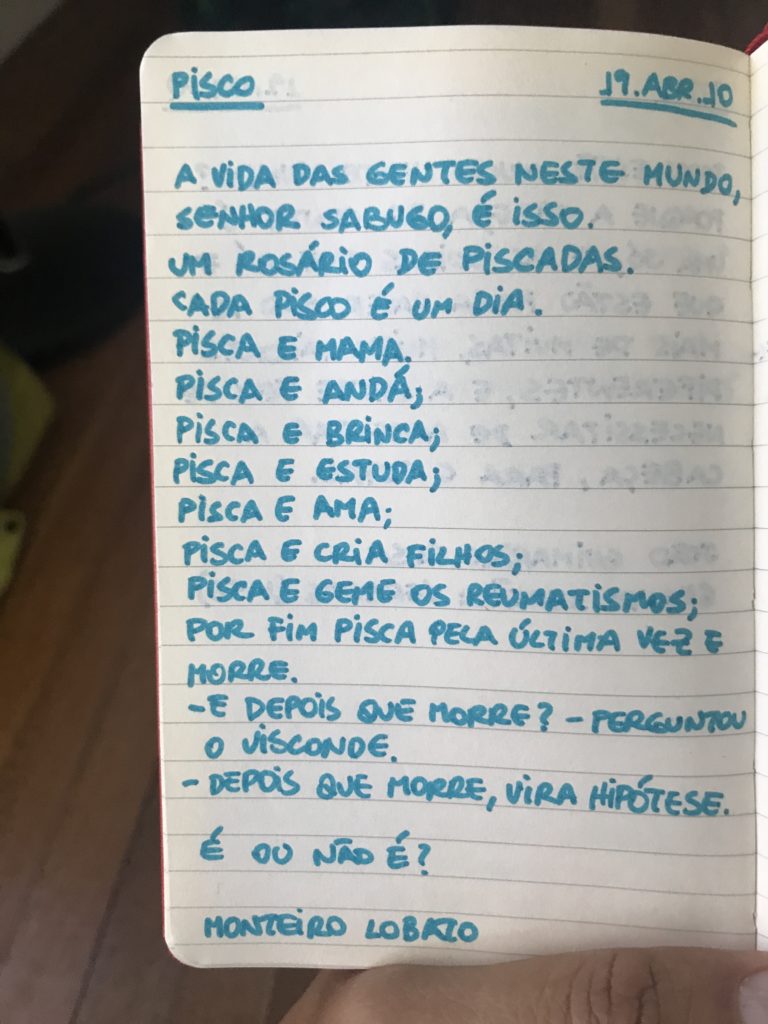 PISCO 19.ABR.10
A VIDA DAS GENTES NESTE MUNDO,
SENHOR SABUGO, É ISSO.
UM ROSÁRIO DE PISCADAS.
CADA PISCO É UM DIA.
PISCA E MAMA.
PISCA E ANDÁ;
PISCA E BRINCA;
PISCA E ESTUDA;
PISCA E AMA;
PISCA E CRIA FILHOS;
PISCA E GEME OS REUMATISMOS;
POR FIM PISCA PELA ÚLTIMA VEZ E
MORRE.
- E DEPOIS QUE MORRE? - PERGUNTOU
O VISCONDE.
- DEPOIS QUE MORRE, VIRA HIPÓTESE.
É OU NÃO É?
MONTEIRO LOBATO